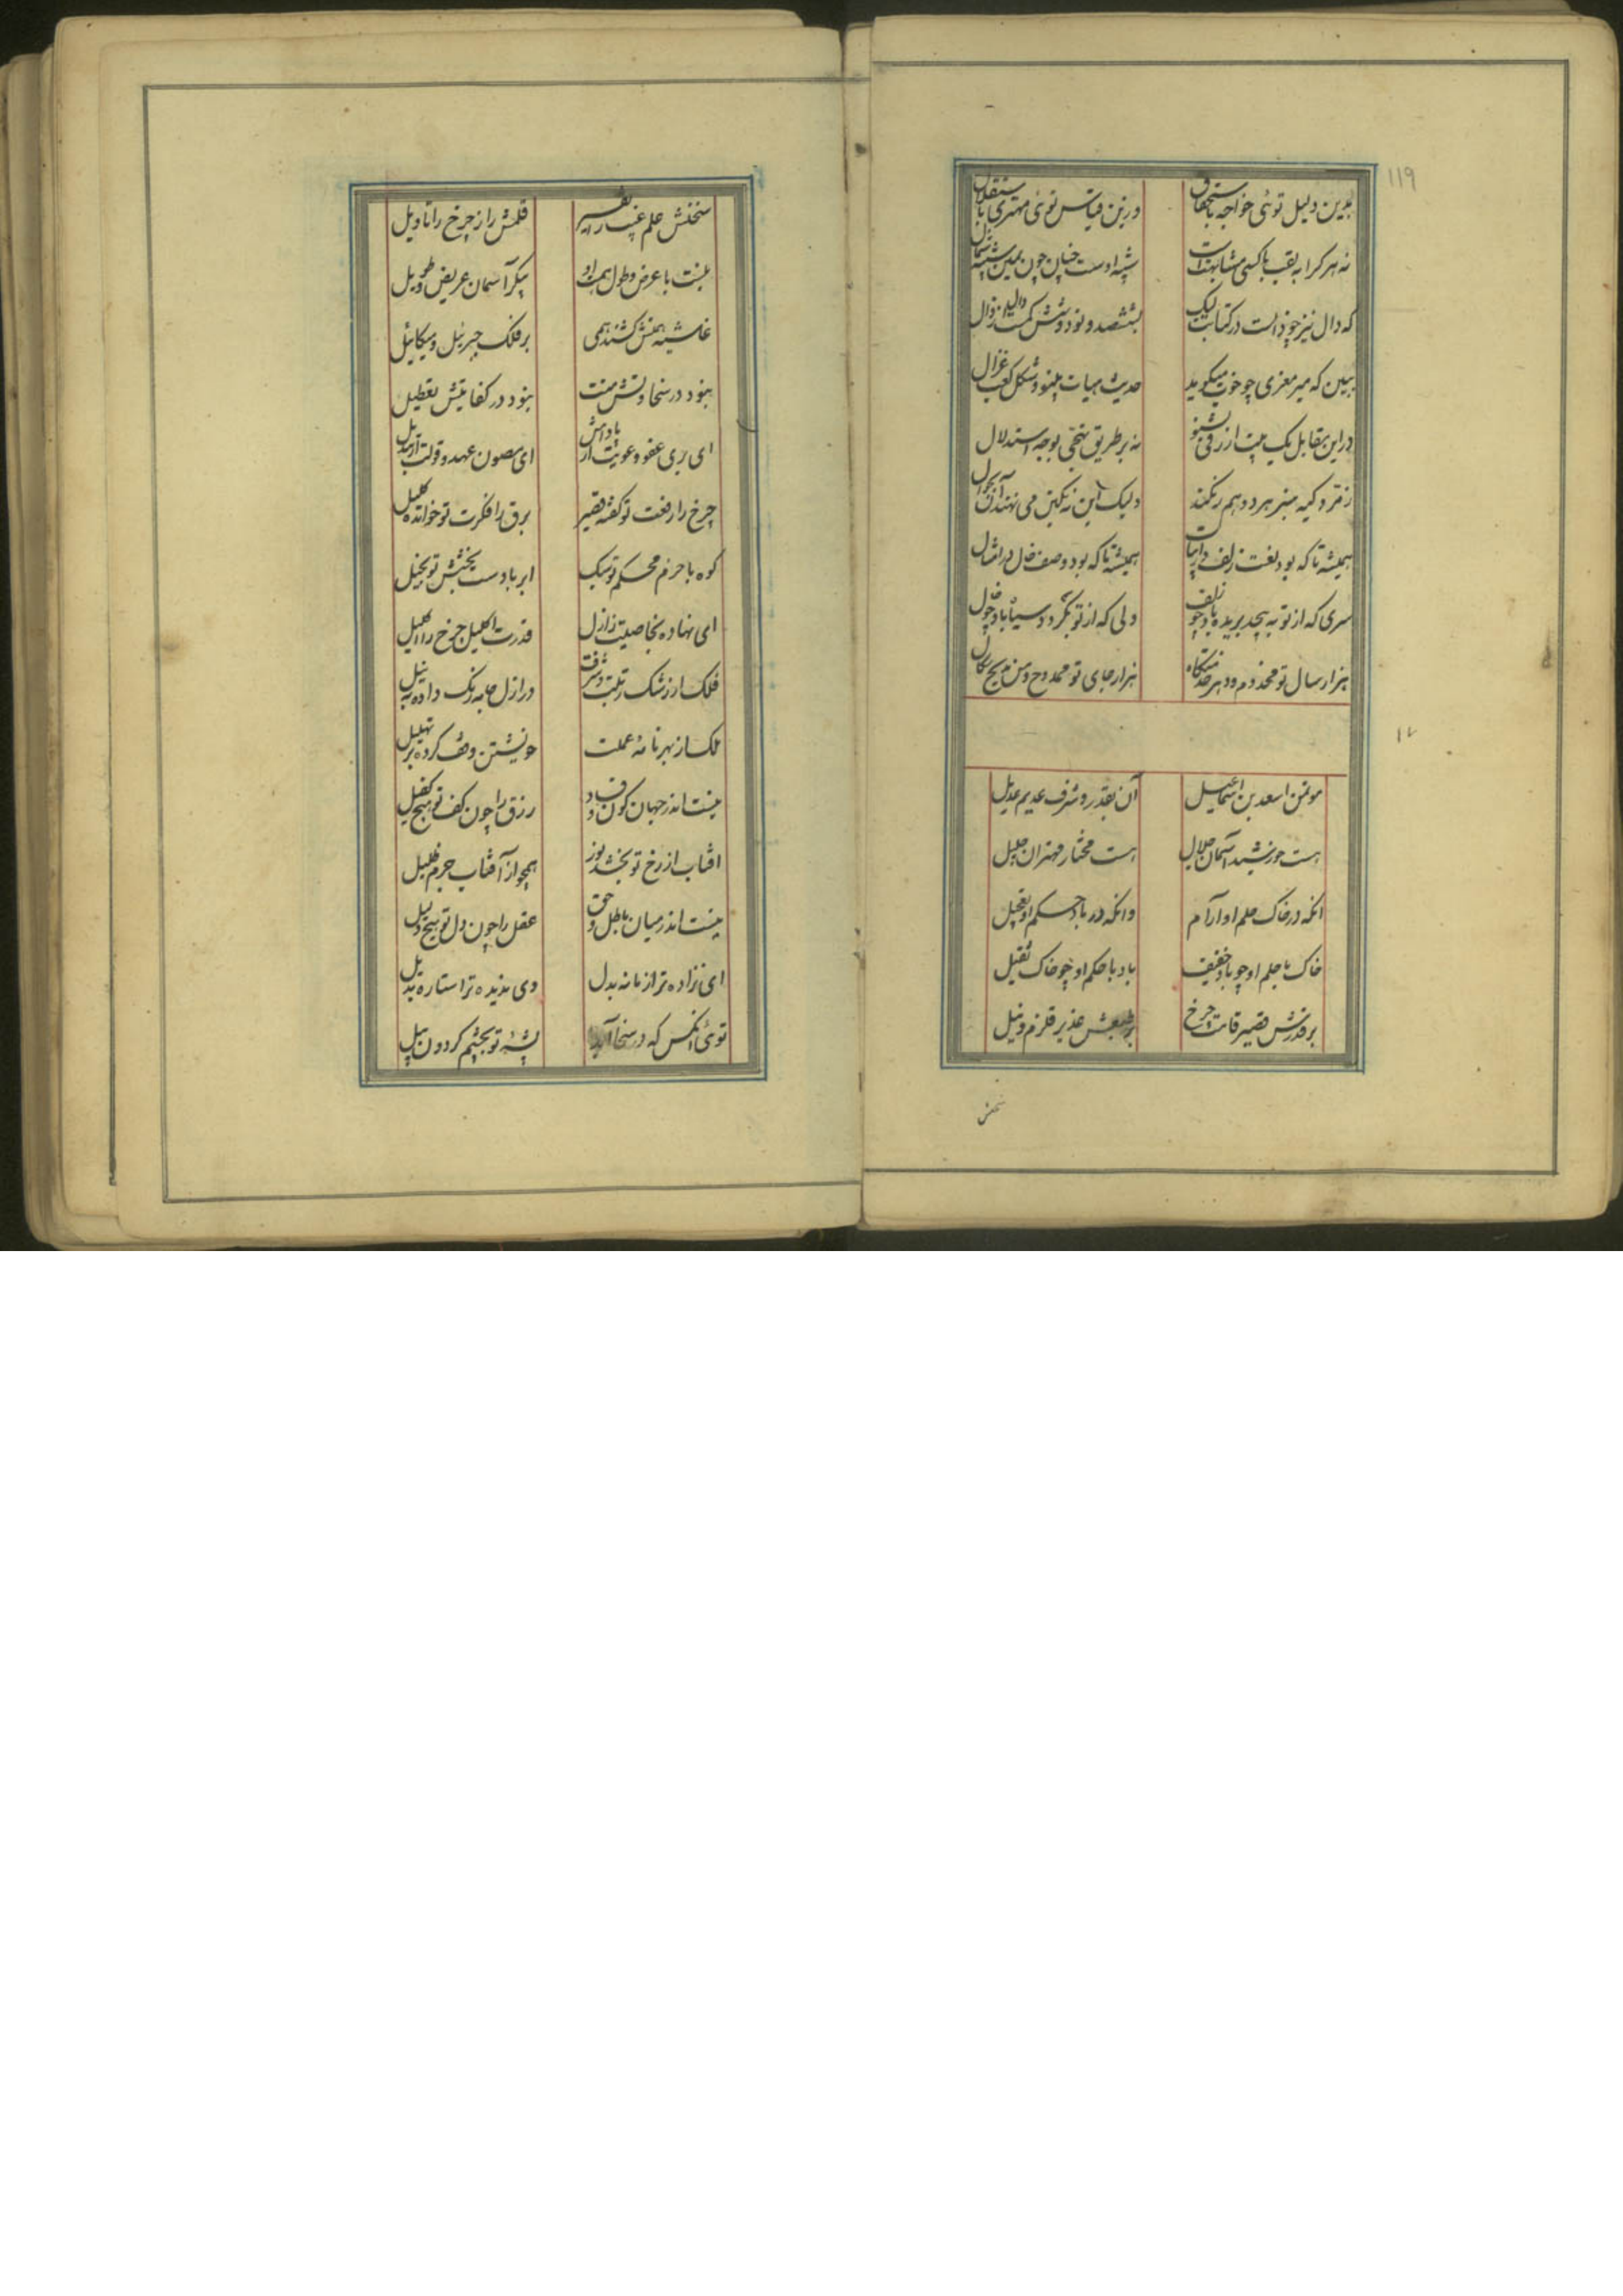 ۱۱۹
بدین دلیل توئی خواجه باستحقاق
وزین قیاس توئی مهتری باستقلال
نه هر کرا به لقب با کسی مشابهتست
شبیه اوست چنان چون یمین شبیه شمال
که دال نیز چو ذالست در کتابت لیک
بششصد و نود و شش کمست دال ز ذال
ببین که میر معزی چو خوب میگوید
حدیث هیات بینو و شکل کعب غزال
در این مقابل یک بیت ازرقی بشنو
نه بر طریق تهجی بوجه استدلال
زمرد و گیه سبز هر دو همرنگند
ولیک این به نگین می نهند آن بجوال
همیشه تا که بود نعت زلف در ابیات
همیشه تا که بود وصف خال در امثال
سری که از تو به پیچد بریده باد چو زلف
دلی که از تو بگردد سیاه باد چو خال
هزار سال تو مخدوم و دهر خدمتکار
هزار جای تو ممدوح و من مدیح سگال
۱۷
موتمن اسعد بن اسمعیل
آن بقدر و شرف عدیم عدیل
هست خورشید آسمان جلال
هست مختار مهتران جلیل
انکه در خاک حلم او آرام
وانکه در باد حکم او تعجیل
خاک با حلم او چو باد خفیف
باد با حکم او چو خاک ثقیل
بر قدرش قصیر قامت چرخ
بر طبعش غدیر قلزم و نیل
سخنش
سخنش علم غیب را تفسیر
قلمش راز چرخ را تاویل
نیست با عرض و طول همت او
پیکر آسمان عریض و طویل
غاشیه همتش کشند همی
بر فلک جبرئیل و میکائیل
نبود در سخاوتش منت
نبود در کفایتش تعطیل
ای بری عفو و عونت از پاداش
ای مصون عهد و قولت از تبدیل
چرخ را رفعت تو گفته قصیر
برق را فکرت تو خوانده کلیل
کوه با حزم محکم تو سبک
ابر با دست بخشش تو بخیل
ای نهاده بخاصیت ز ازل
قدرت اکلیل چرخ را اکلیل
فلک از رشک رتبت و شرفت
در ازل جامه رنگ داده به نیل
ملک از بهر نامه عملت
خویشتن وقف کرده بر تهلیل
نیست اندر جهان کون و فساد
رزق را چون کف تو هیچ کفیل
افتاب از رخ تو بخشد نور
همچو از آفتاب جرم ظلیل
نیست اندر میان باطل و حق
عقل را چون دل تو هیچ دلیل
ای نزاده ترا زمانه بدل
وی ندیده ترا ستاره بدیل
توئی آنکس که در سخا آید
پشه تو بچشم گردون پیل